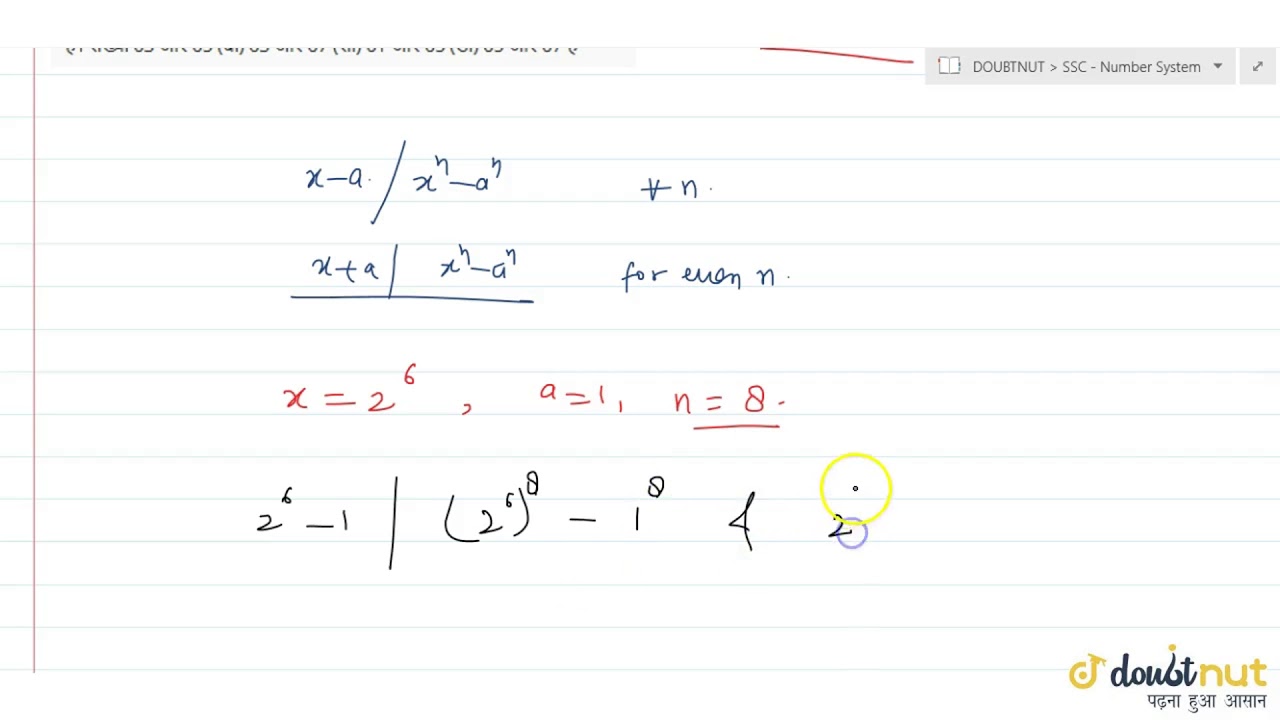 DOUBTNUT > SSC - Number System
x-a / xⁿ-aⁿ ∀ n.
x+a | xⁿ-aⁿ for even n.
x = 2⁶, a=1, n = 8.
2⁶-1 | (2⁶)⁸ - 1⁸ & 2
doubtnut
पढ़ना हुआ आसान